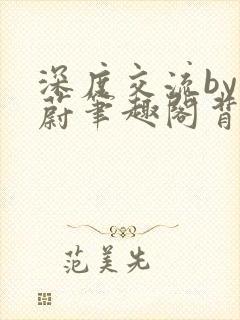 深度交流by
蔚笔趣阁背
范美先